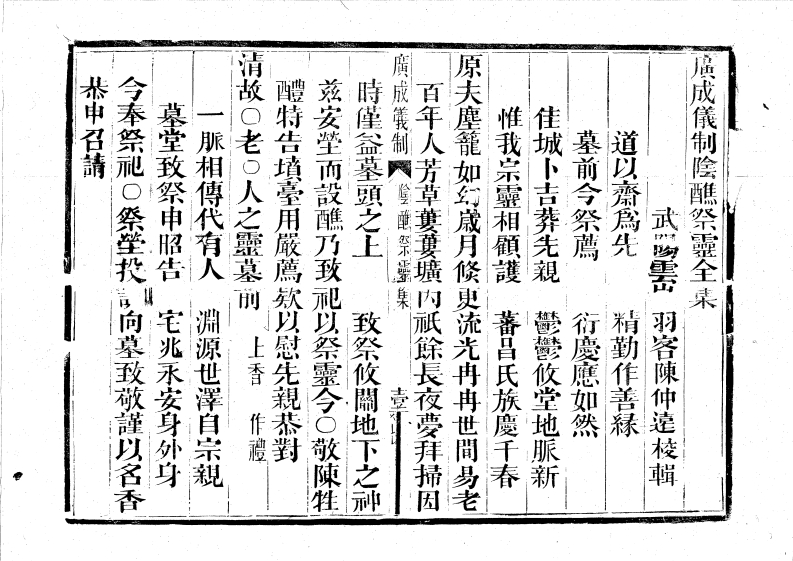 廣成儀制陰醮祭靈全集
武陽雲峊　羽客陳仲遠校輯
道以齋爲先　精勤作善緣
墓前今祭薦　衍慶應如然
佳城卜吉葬先親　鬱鬱攸堂地脈新
惟我宗靈相顧護　蕃昌氏族慶千春
原夫塵籠如幻歲月條更流光冉冉世間易老
百年人芳草萋萋壙內祇餘長夜夢拜掃因
廣成儀制　陰醮祭靈集　壹
時僅盆墓頭之上　致祭攸關地下之神
茲安塋而設醮乃致祀以祭靈今○敬陳牲
醴特告墳臺用嚴薦欵以慰先親恭對
清故○老○人之靈墓前　上香　作禮
一脈相傳代有人　淵源世澤自宗親
墓堂致祭申昭告　宅兆永安身外身
今奉祭祀○祭塋投詞向墓致敬謹以名香
恭申召請